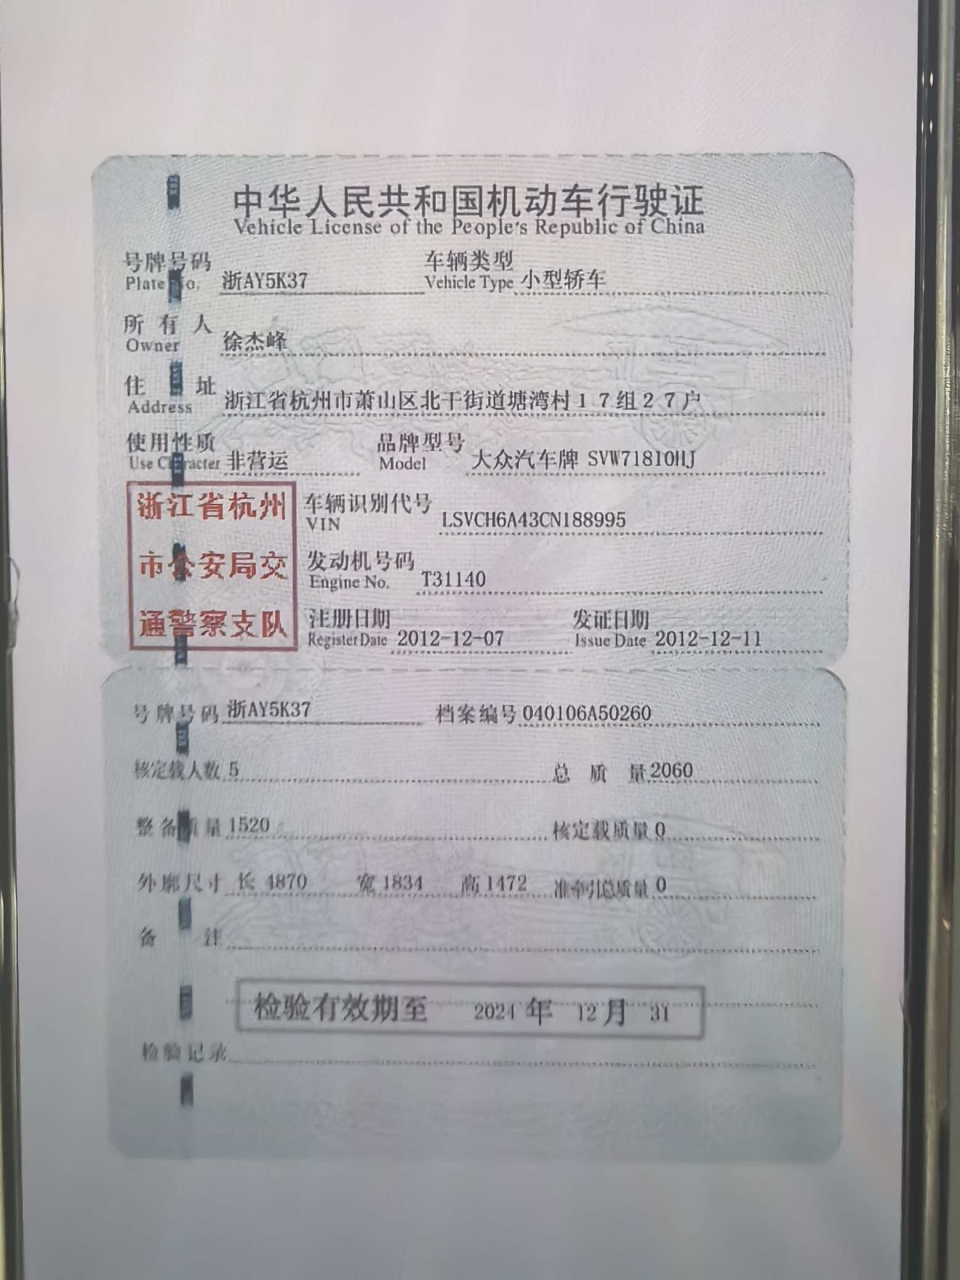 中华人民共和国机动车行驶证
Vehicle License of the People's Republic of China
号牌号码 浙AY5K37 车辆类型 小型轿车
Plate No. Vehicle Type
所有人 徐杰峰
Owner
住址 浙江省杭州市萧山区北干街道塘湾村17组27户
Address
使用性质 非营运 品牌型号 大众汽车牌 SVW71810HJ
Use Character Model
浙江省杭州
市公安局交
通警察支队
车辆识别代号 LSVCH6A43CN188995
VIN
发动机号码 T31140
Engine No.
注册日期 2012-12-07 发证日期 2012-12-11
Register Date Issue Date
号牌号码 浙AY5K37 档案编号 040106A50260
核定载人数 5 总质量 2060
整备质量 1520 核定载质量 0
外廓尺寸 长 4870 宽 1834 高 1472 准牵引总质量 0
备注
检验有效期至 2024 年 12 月 31
检验记录